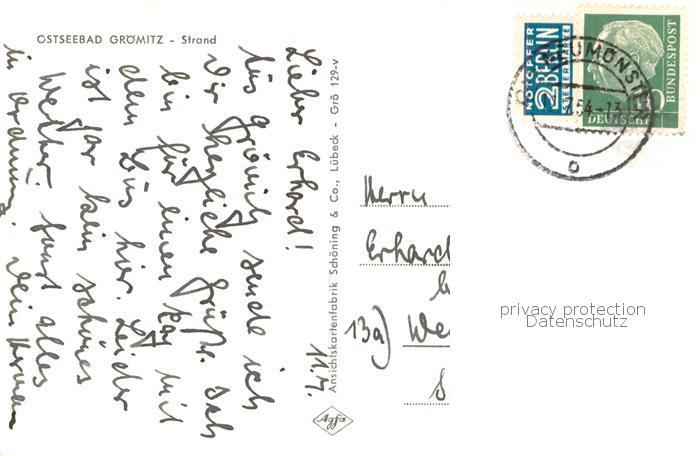 OSTSEEBAD GRÖMITZ - Strand
11.7.
Lieber Erhard!
Aus Grömitz sende ich
Dir herzliche Grüße. Ich
bin für einen Tag mit
dem Bus hier. Leider
ist gar kein schönes
Wetter. Sonst alles
in Ordnung. Dein Herman
Ansichtskartenfabrik Schöning & Co., Lübeck - Grö 129-v
Agfa
NOTOPFER
2 BERLIN
STEUERMARKE
DEUTSCHE
BUNDESPOST
NEUMÜNSTE
54-13
b
Herrn
Erhard
13a) We
S
privacy protection
Datenschutz